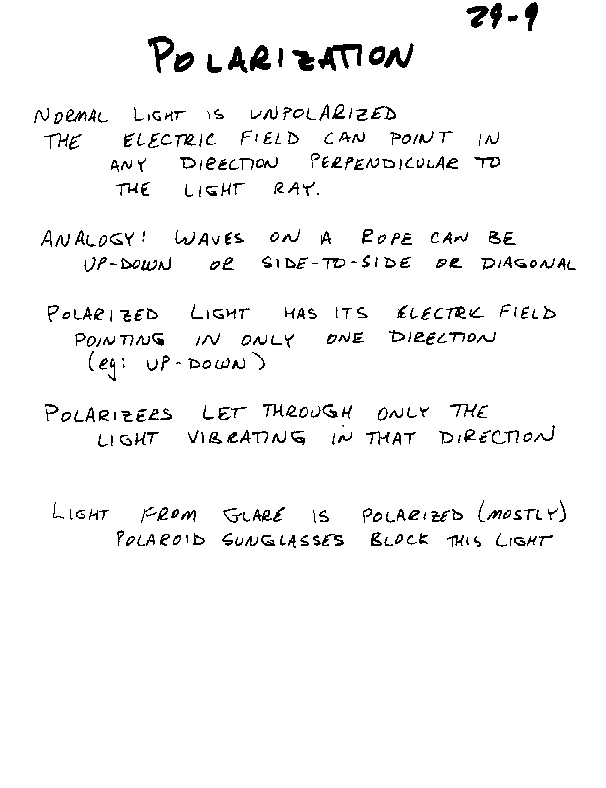 29-9
POLARIZATION
NORMAL LIGHT IS UNPOLARIZED
THE ELECTRIC FIELD CAN POINT IN
ANY DIRECTION PERPENDICULAR TO
THE LIGHT RAY.
ANALOGY: WAVES ON A ROPE CAN BE
UP-DOWN OR SIDE-TO-SIDE OR DIAGONAL
POLARIZED LIGHT HAS ITS ELECTRIC FIELD
POINTING IN ONLY ONE DIRECTION
(eg: UP-DOWN)
POLARIZERS LET THROUGH ONLY THE
LIGHT VIBRATING IN THAT DIRECTION
LIGHT FROM GLARE IS POLARIZED (MOSTLY)
POLAROID SUNGLASSES BLOCK THIS LIGHT